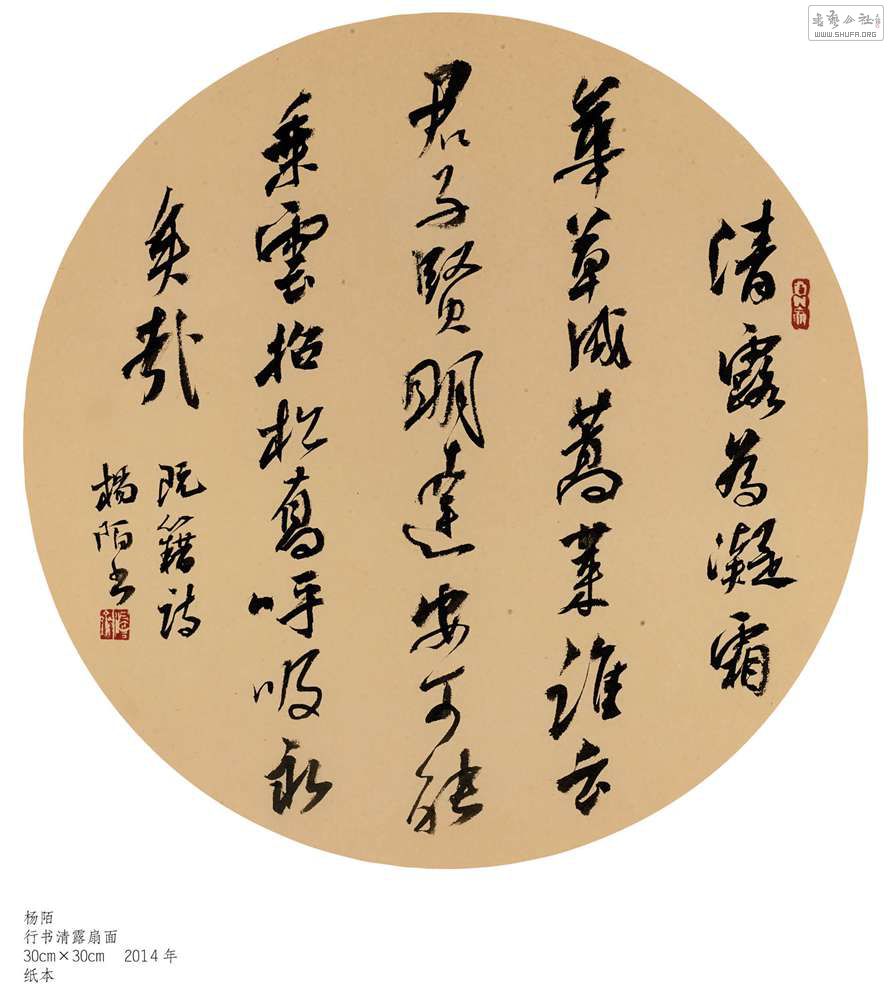 書藝公社
WWW.SHUFA.ORG
清露為凝霜
華草成蒿萊誰云
君子賢明達安可能
乘雲招松喬呼吸永
矣哉
阮籍詩
楊陌書
杨陌
行书清露扇面
30cm×30cm 2014年
纸本